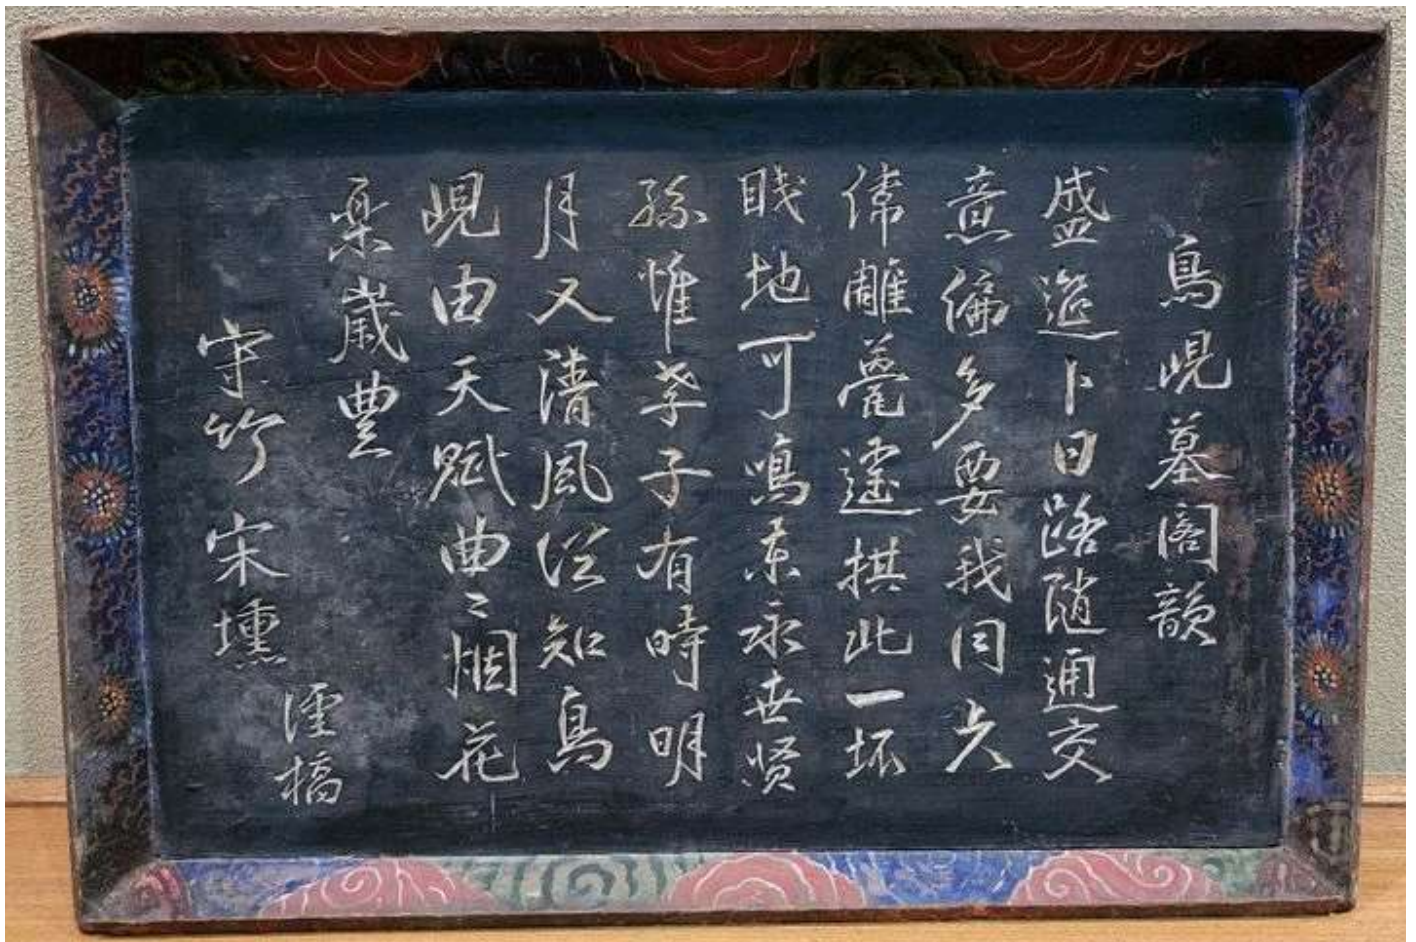 烏峴墓閣韻
盛筵卜日路隨通交
意偏多要我同六
偉雕甍遙拱此一坏
賤地可鳴東永世賢
孫惟孝子有時明
月又清風從知烏
峴由天賦曲〻烟花
樂歲豊
守竹宋壎
橋